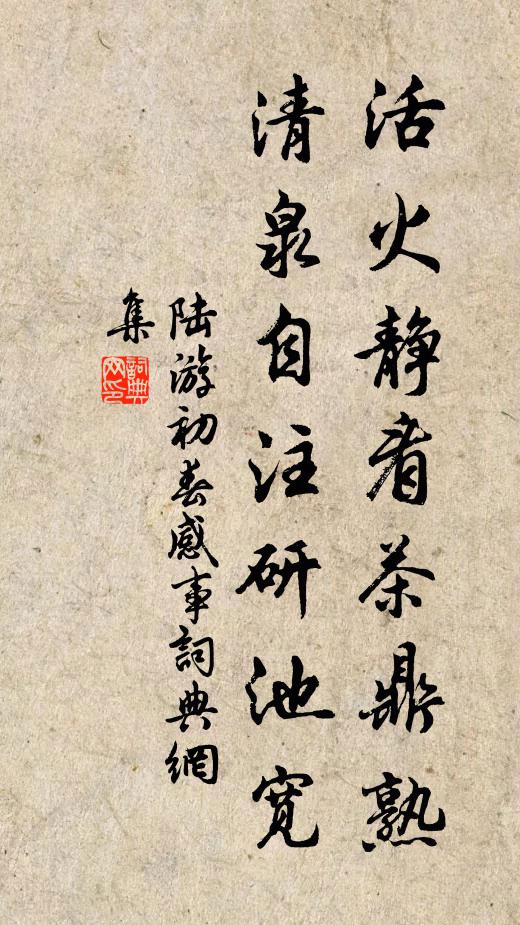 活火静看茶鼎熟
清泉自注研池寬
陆游初春感事詞典網
集
詞典網印